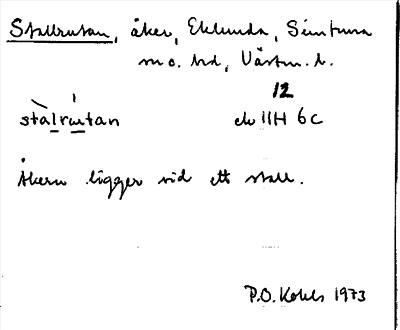 Stallrutan, åker, Eklunda, Simtuna
sn o. hd, Västm. l.
12
stàlrútan ek 11H 6c
Åkern ligger vid ett stall.
P.O. Kohls 1973